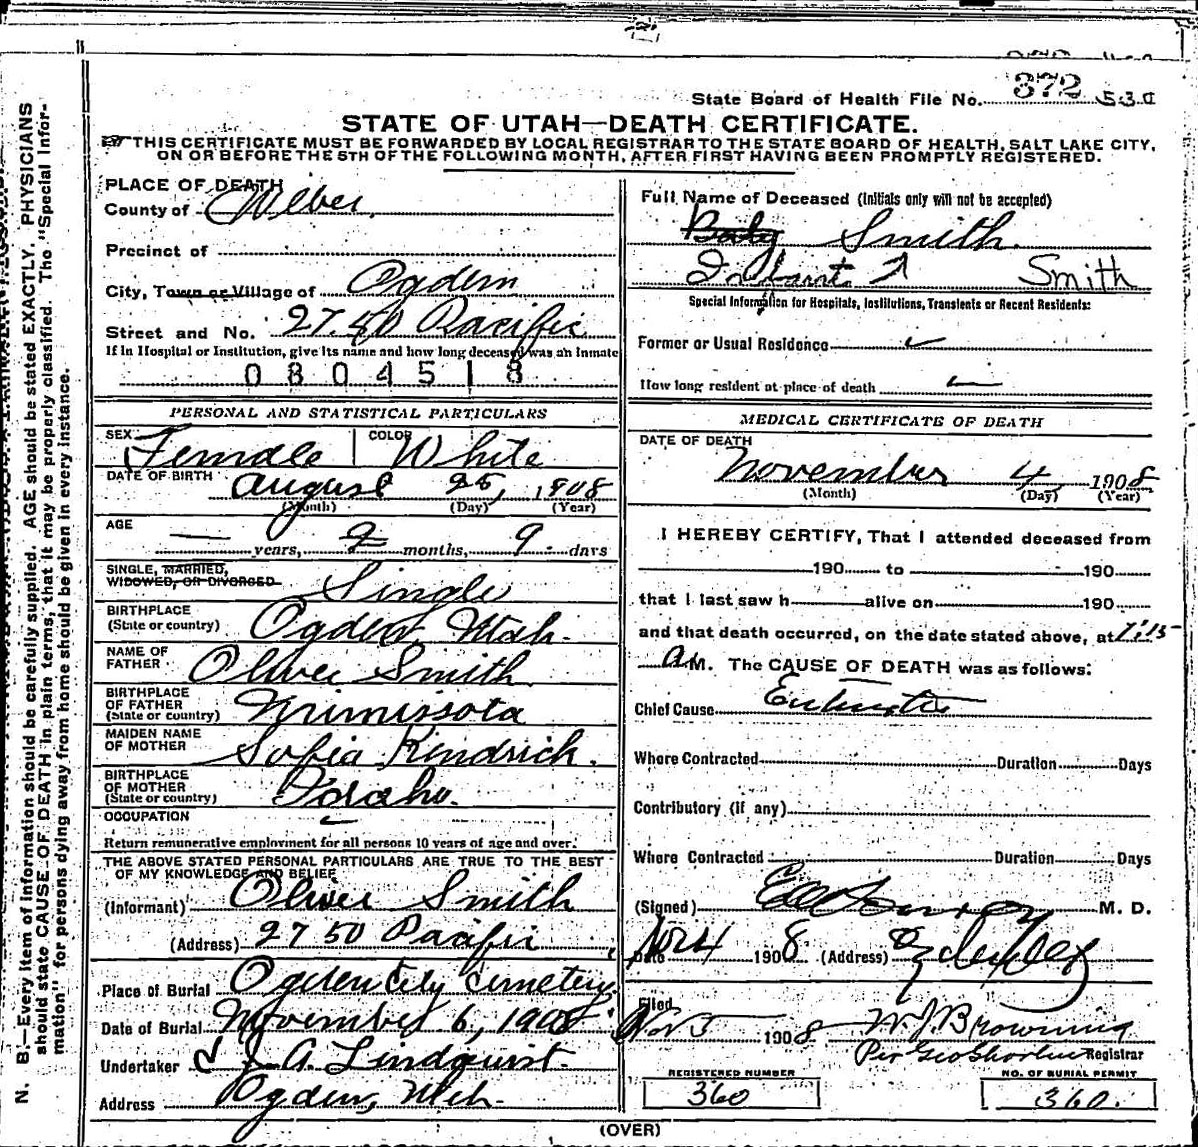 State Board of Health File No. 372
STATE OF UTAH—DEATH CERTIFICATE.
THIS CERTIFICATE MUST BE FORWARDED BY LOCAL REGISTRAR TO THE STATE BOARD OF HEALTH, SALT LAKE CITY,
ON OR BEFORE THE 5TH OF THE FOLLOWING MONTH, AFTER FIRST HAVING BEEN PROMPTLY REGISTERED.
N. B.—Every item of information should be carefully supplied. AGE should be stated EXACTLY. PHYSICIANS
should state CAUSE OF DEATH in plain terms, that it may be properly classified. The "Special Infor-
mation" for persons dying away from home should be given in every instance.
PLACE OF DEATH
County of Weber
Precinct of
City, Town or Village of Ogden
Street and No. 2750 Pacific
If in Hospital or Institution, give its name and how long deceased was an inmate
0804518
PERSONAL AND STATISTICAL PARTICULARS
SEX Female COLOR White
DATE OF BIRTH August 25, 1908
(Month) (Day) (Year)
AGE
— years, 2 months, 9 days
SINGLE, MARRIED,
WIDOWED, OR DIVORCED Single
BIRTHPLACE
(State or country) Ogden, Utah.
NAME OF
FATHER Oliver Smith
BIRTHPLACE
OF FATHER
(State or country) Minnissota
MAIDEN NAME
OF MOTHER Sofia Kendrick.
BIRTHPLACE
OF MOTHER
(State or country) Idaho.
OCCUPATION
Return remunerative employment for all persons 10 years of age and over.
THE ABOVE STATED PERSONAL PARTICULARS ARE TRUE TO THE BEST
OF MY KNOWLEDGE AND BELIEF
(Informant) Oliver Smith
(Address) 2750 Pacific
Place of Burial Ogden City Cemetery
Date of Burial November 6, 1908
Undertaker J. A. Lindquist.
Address Ogden, Utah.
Full Name of Deceased (Initials only will not be accepted)
Baby Smith.
Infant Smith
Special Information for Hospitals, Institutions, Transients or Recent Residents:
Former or Usual Residence
How long resident at place of death
MEDICAL CERTIFICATE OF DEATH
DATE OF DEATH
November 4 1908
(Month) (Day) (Year)
I HEREBY CERTIFY, That I attended deceased from
190 to 190
that I last saw h alive on 190
and that death occurred, on the date stated above, at 7:15
A M. The CAUSE OF DEATH was as follows:
Chief Cause
Where Contracted Duration Days
Contributory (if any)
Where Contracted Duration Days
(Signed) M. D.
Date Nov 4 1908 (Address) Ogden
Filed
Nov 5 1908 W. J. Browning
Per Geo Registrar
REGISTERED NUMBER
360
NO. OF BURIAL PERMIT
360.
(OVER)